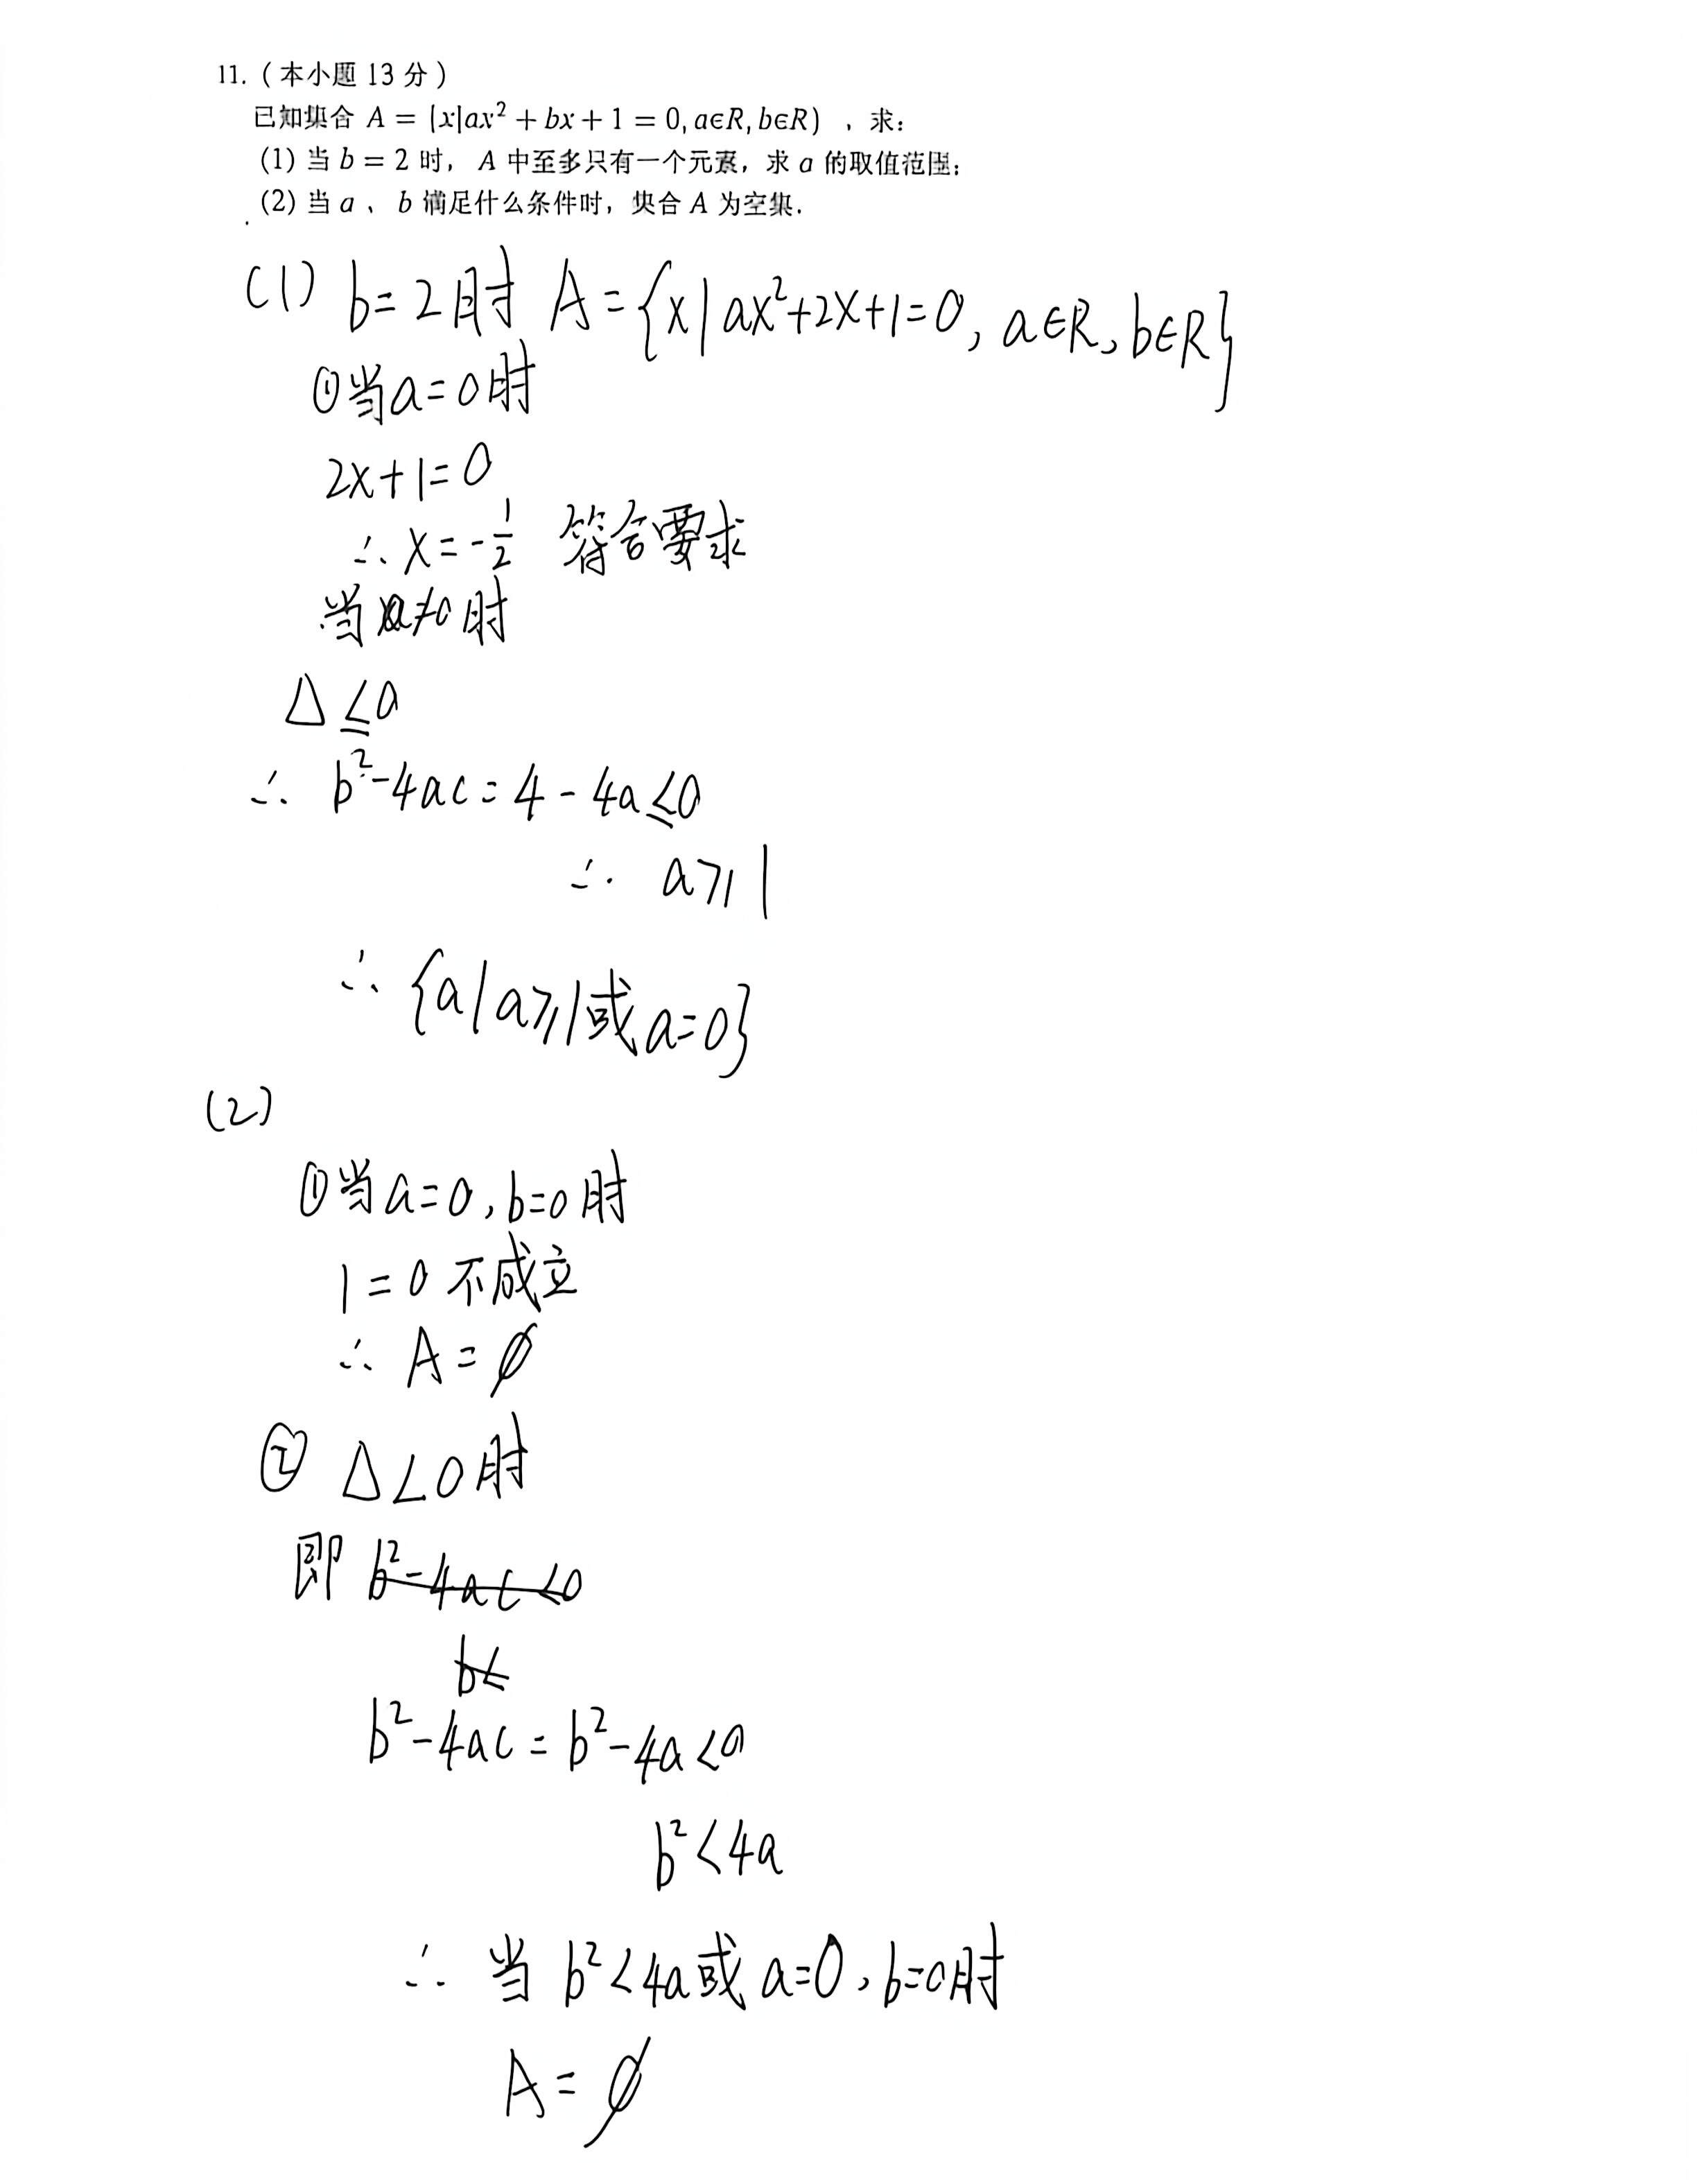 11.(本小题 13 分)
已知集合 A = {x|ax² + bx + 1 = 0, a∈R, b∈R) ,求:
(1) 当 b = 2 时, A 中至多只有一个元素,求 a 的取值范围;
(2) 当 a 、 b 满足什么条件时,集合 A 为空集.
(1) b=2时 A={x|ax²+2x+1=0, a∈R, b∈R}
①当a=0时
2x+1=0
∴ x=-1/2 符合要求
当a≠0时
Δ≤0
∴ b²-4ac=4-4a≤0
∴ a⩾1
∴ {a|a⩾1或a=0}
(2)
①当a=0,b=0时
1=0不成立
∴ A=∅
② Δ<0时
即 b²-4ac<0
b<
b²-4ac=b²-4a<0
b²<4a
∴ 当b²<4a或a=0,b=0时
A=∅